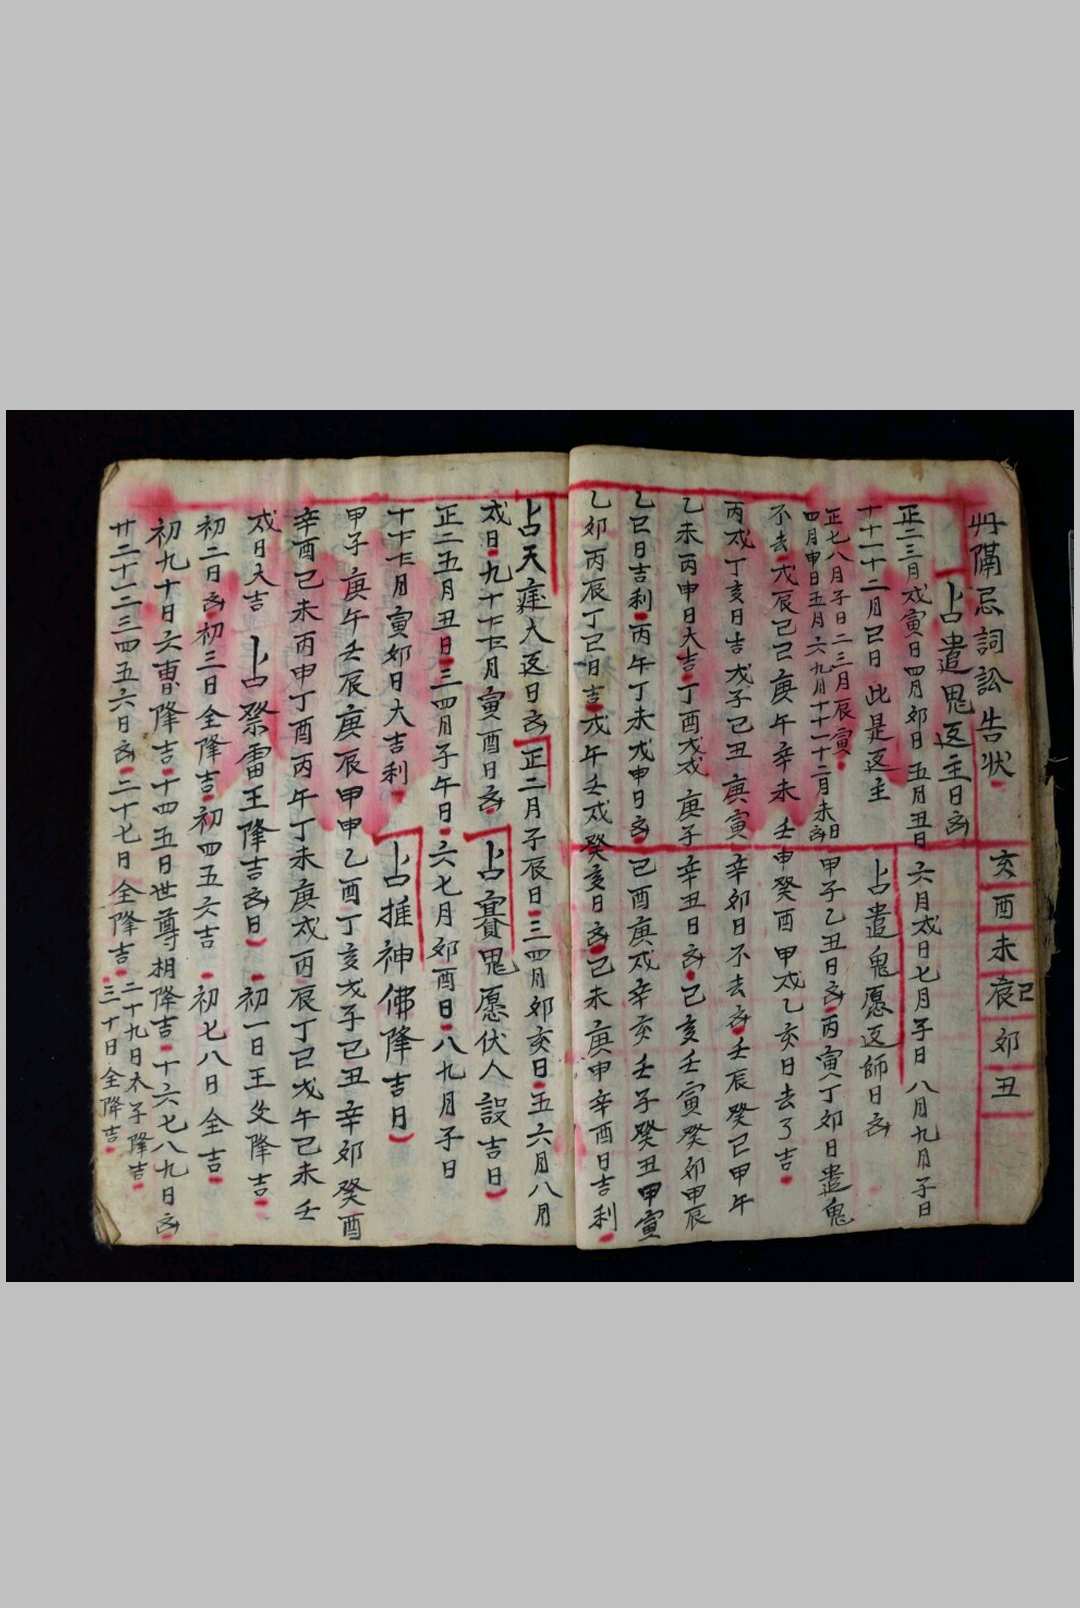 忌詞訟告状
亥酉未辰巳卯丑
占遣鬼返主日凶
正二三月戌寅日四月卯日五月丑日六月戌日七月子日八月九月子日
十十一十二月巳日此是返主
占遣鬼愿返師日凶
正七八月子日二三月辰寅
四月申日五月六九月十十一十二月未日凶
甲子乙丑日凶丙寅丁卯日遣鬼
不去戊辰己巳庚午辛未壬申癸酉甲戌乙亥日去了吉
丙戌丁亥日吉戊子己丑庚寅辛卯日不去凶壬辰癸巳甲午
乙未丙申日大吉丁酉戊戌庚子辛丑日凶己亥壬寅癸卯甲辰
乙巳日吉利丙午丁未戊申日凶己酉庚戌辛亥壬子癸丑甲寅
乙卯丙辰丁巳日吉戊午壬戌癸亥日凶己未庚申辛酉日吉利
占天瘟大返日凶正二月子辰日三四月卯亥日五六月八月
戌日九十十一十二月寅酉日凶
占賽鬼愿伏人設吉日
正二五月丑日三四月子午日六七月卯酉日八九月子日
十十一十二月寅卯日大吉利
占推神佛降吉日
甲子庚午壬辰庚辰甲申乙酉丁亥戊子己丑辛卯癸酉
辛酉己未丙申丁酉丙午丁未庚戌丙辰丁巳戊午己未壬
戌日大吉
占祭雷王降吉凶日
初一日王父降吉
初二日凶初三日全降吉初四五六吉初七八日全吉
初九十日六曹降吉十四五日世尊相降吉十六七八九日凶
廿二十二三四五六日凶二十七日全降吉
二十九日本子降吉
三十日全降吉